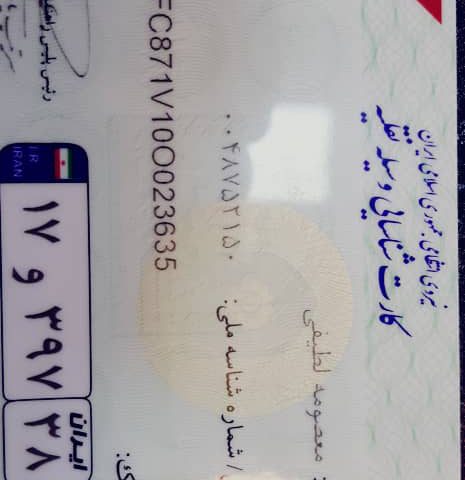 نیروی انتظامی جمهوری اسلامی ایران
کارت شناسایی وسیله نقلیه
: معصومه لطیفی
/ شماره شناسه ملی: ۰۰۴۸۷۵۲۱۵۰
FC871V10O023635
رئیس پلیس
I R
IRAN
۱۷ و ۳۹۷
ایران
۳۸